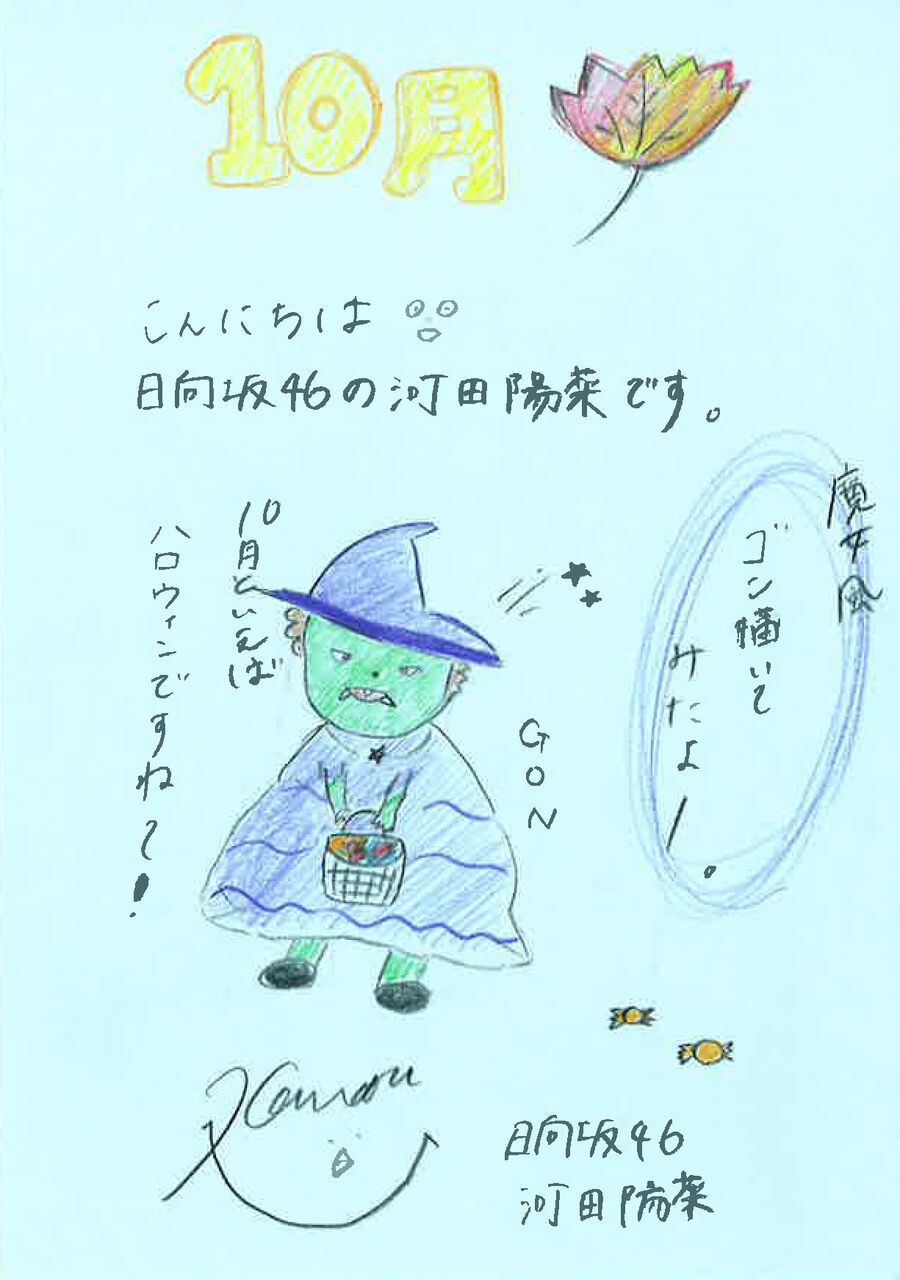 10月
こんにちは
日向坂46の河田陽菜です。
10月といえば
ハロウィンですね〜!
魔女風
ゴン描いて
みたよー。
GON
Kawata
日向坂46
河田陽菜